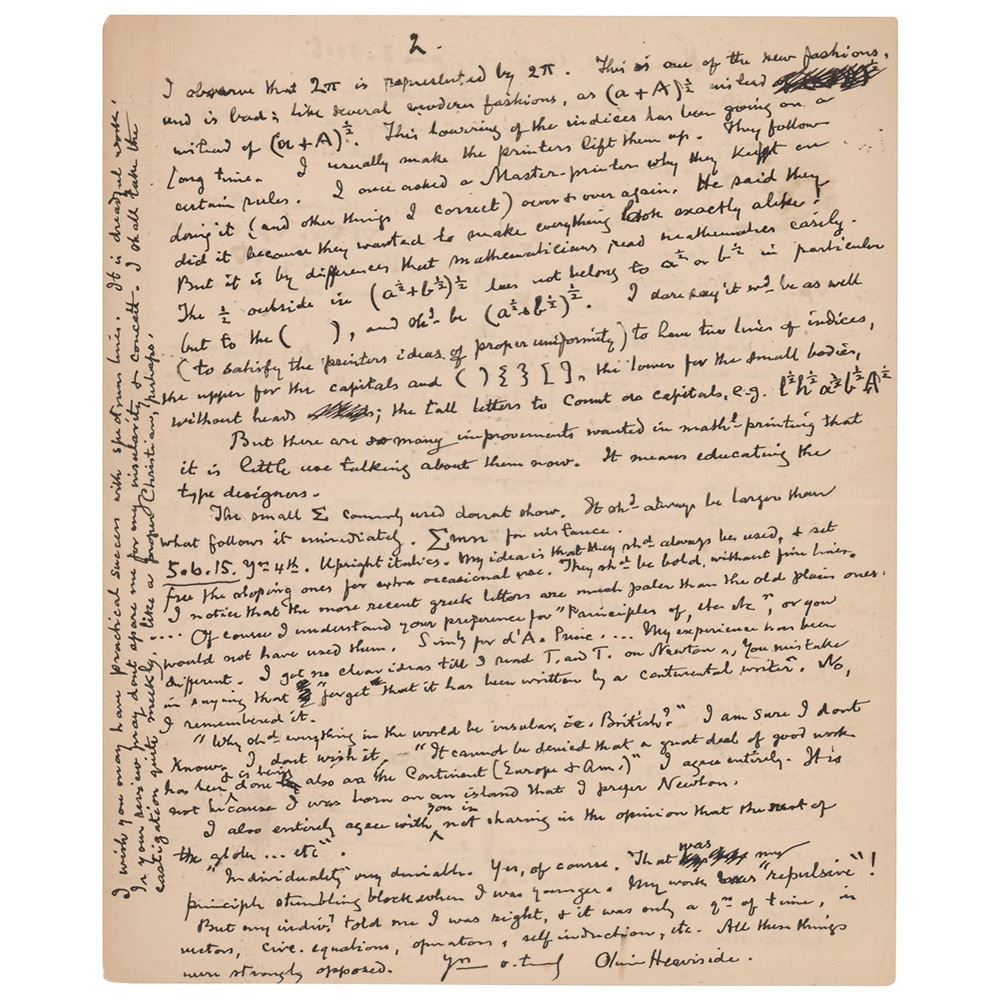 2.
I observe that 2π is represented by 2π. This is one of the new fashions,
and is bad; like several modern fashions, as (a + A)½ instead
instead of (a + A)½. This lowering of the indices has been going on a
long time. I usually make the printers lift them up. They follow
certain rules. I once asked a Master-printer why they kept on
doing it (and other things I correct) over & over again. He said they
did it because they wanted to make everything look exactly alike.
But it is by differences that mathematicians read mathematics easily.
The ½ outside in (a½+b½)½ does not belong to a½ or b½ in particular
but to the ( ), and shd be (a½+b½)½. I dare say it wd be as well
(to satisfy the printers ideas of proper uniformity) to have two lines of indices,
the upper for the capitals and ( ) { } [ ], the lower for the small bodies,
without heads; the tall letters to count as capitals, e.g. l½h½a½b½A½
But there are so many improvements wanted in mathl-printing that
it is little use talking about them now. It means educating the
type designers.
The small Σ commonly used doesnt show. It shd always be larger than
what follows it immediately. Σmn for instance.
5.6.15. Yrs 4th. Upright italics. My idea is that they shd always be used, & set
free the sloping ones for extra occasional use. They shd be bold, without fine lines.
I notice that the more recent greek letters are much paler than the old plain ones.
.... Of course I understand your preference for "Principles of, etc etc", or you
would not have used them. Simly for d'A. Princ. ... My experience has been
different. I got no clear ideas till I read T. and T. on Newton. You mistake
in saying that I "forget that it has been written by a continental writer". No,
I remembered it.
"Why shd everything in the world be insular, i.e. British?" I am sure I dont
know, I dont wish it. "It cannot be denied that a great deal of good work
has been & is being done also on the Continent (Europe & Am.)" I agree entirely. It is
not because I was born on an island that I prefer Newton.
I also entirely agree with you in not sharing in the opinion that the rest of
the globe ... etc".
"Individuality" very desirable. Yes, of course. That was my
principle stumbling block when I was younger. My work was "repulsive"!
But my indivy told me I was right, & it was only a qn of time, in
vectors, circ. equations, operators, self induction, etc. All these things
were strongly opposed. Yrs v. truly Oliver Heaviside.
I wish you may have practical success with spectrum lines. It is dreadful work.
In your review pray dont spare me for my insularity & conceit. I shall take the
castigation quite meekly, like a proper Christian, perhaps.